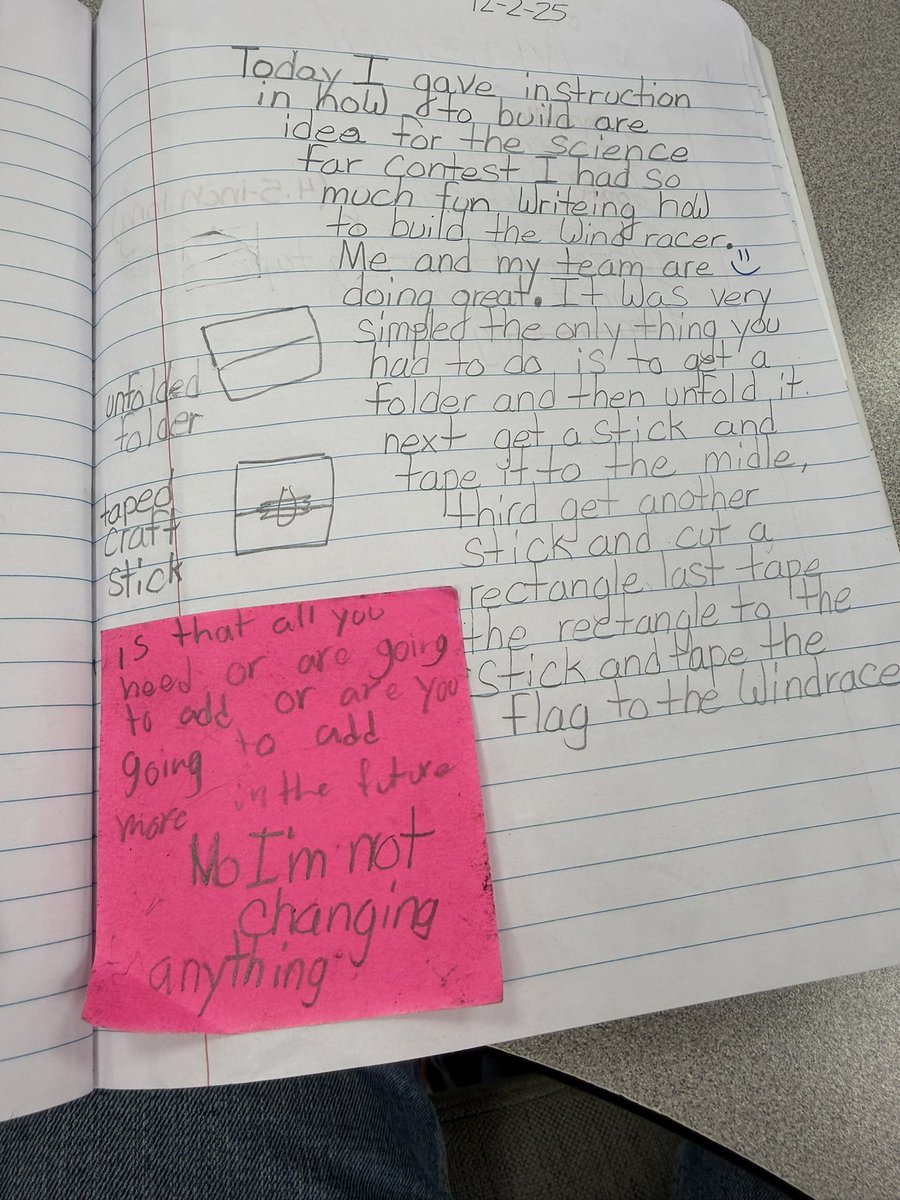 12-2-25
Today I gave instruction
in how to build are
idea for the science
far contest I had so
much fun writeing how
to build the Wind racer.
Me and my team are
doing great. It was very
simpled the only thing you
had to do is to get a
folder and then unfold it.
next get a stick and
tape it to the midle,
third get another
stick and cut a
rectangle last tape
the rectangle to the
stick and tape the
flag to the Windrace
unfolded
folder
taped
craft
stick
is that all you
need or are going
to add or are you
going to add
more in the future
No I'm not
changing
anything